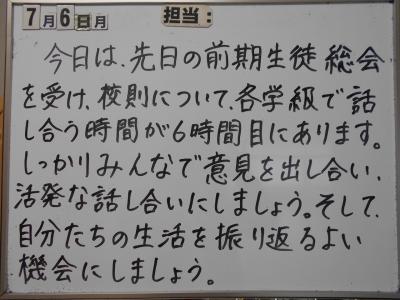 7月6日月 担当:
今日は、先日の前期生徒総会
を受け、校則について、各学級で話
し合う時間が6時間目にあります。
しっかりみんなで意見を出し合い、
活発な話し合いにしましょう。そして、
自分たちの生活を振り返るよい
機会にしましょう。